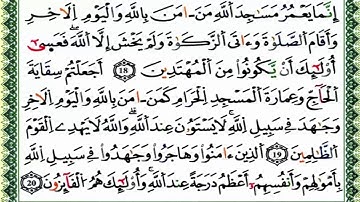 إِنَّمَا يَعْمُرُ مَسَٰجِدَ ٱللَّهِ مَنْ ءَامَنَ بِٱللَّهِ وَٱلْيَوْمِ ٱلْأٓخِرِ
وَأَقَامَ ٱلصَّلَوٰةَ وَءَاتَى ٱلزَّكَوٰةَ وَلَمْ يَخْشَ إِلَّا ٱللَّهَ ۖ فَعَسَىٰٓ
أُو۟لَٰٓئِكَ أَن يَكُونُوا۟ مِنَ ٱلْمُهْتَدِينَ ١٨ أَجَعَلْتُمْ سِقَايَةَ
ٱلْحَآجِّ وَعِمَارَةَ ٱلْمَسْجِدِ ٱلْحَرَامِ كَمَنْ ءَامَنَ بِٱللَّهِ وَٱلْيَوْمِ ٱلْأٓخِرِ
وَجَٰهَدَ فِى سَبِيلِ ٱللَّهِ ۚ لَا يَسْتَوُۥنَ عِندَ ٱللَّهِ ۗ وَٱللَّهُ لَا يَهْدِى ٱلْقَوْمَ
ٱلظَّٰلِمِينَ ١٩ ٱلَّذِينَ ءَامَنُوا۟ وَهَاجَرُوا۟ وَجَٰهَدُوا۟ فِى سَبِيلِ ٱللَّهِ
بِأَمْوَٰلِهِمْ وَأَنفُسِهِمْ أَعْظَمُ دَرَجَةً عِندَ ٱللَّهِ ۚ وَأُو۟لَٰٓئِكَ هُمُ ٱلْفَآئِزُونَ ٢٠